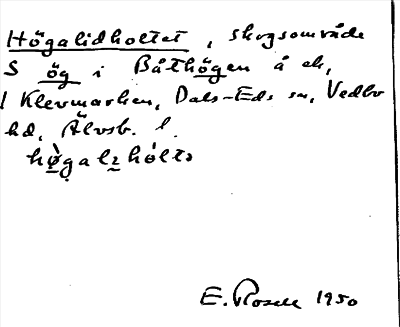 Högalidholtet, skogsområde
S ög i Båthögen å ek.
l Klevmarken, Dals-Eds sn, Vedbo
hd, Älvsb. l.
E. Rosell 1950